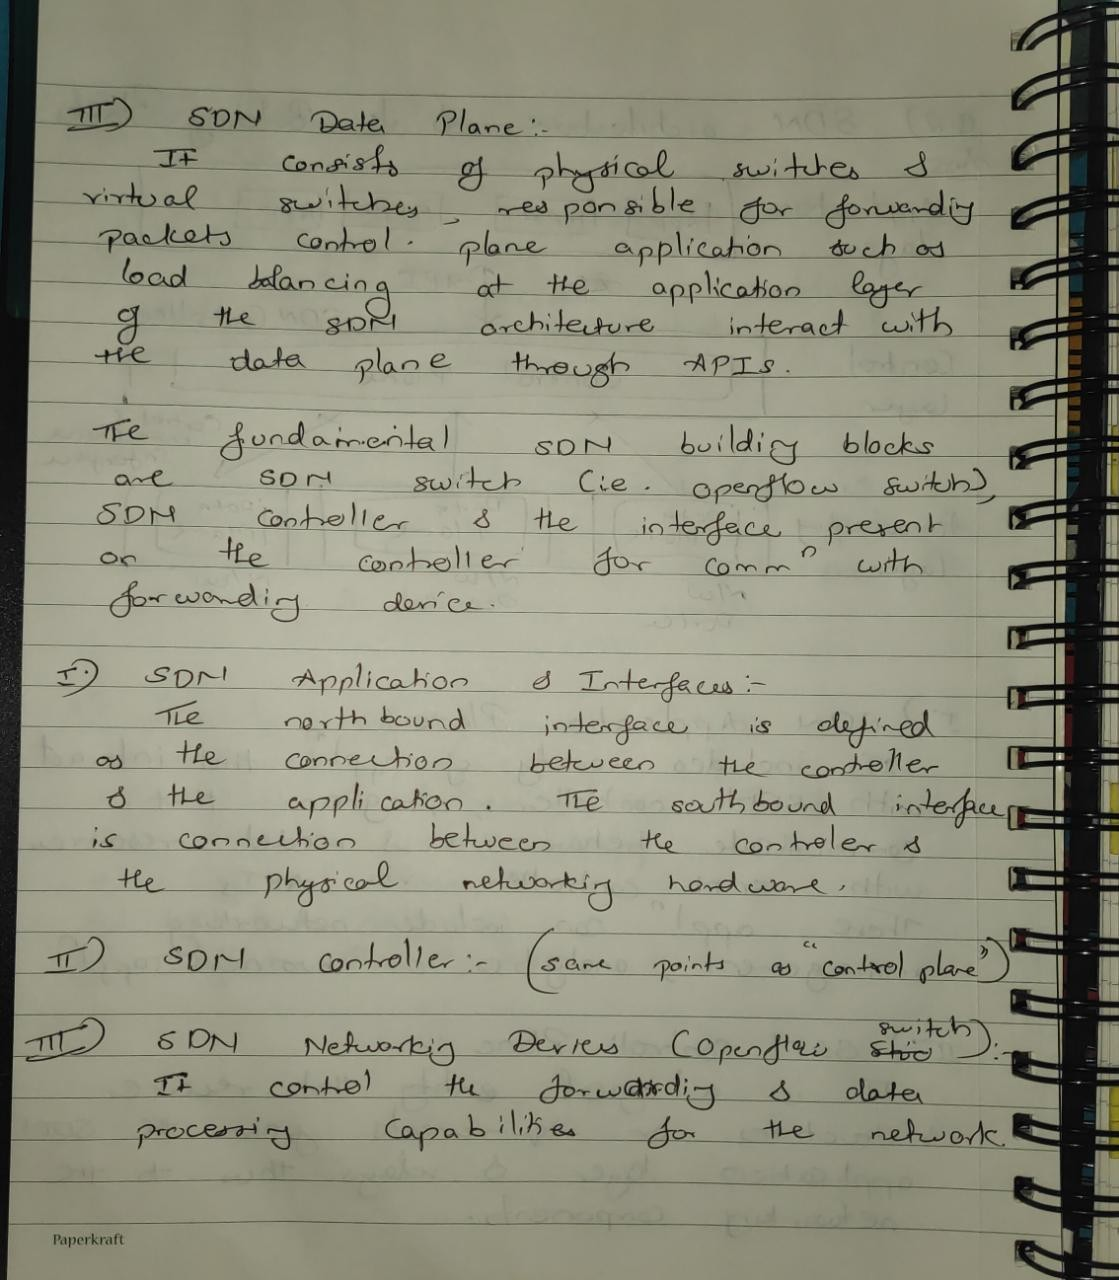 III) SDN Data Plane:-
It consists of physical switches &
virtual switches, responsible for forwarding
packets control. plane application such as
load balancing at the application layer
of the SDN architecture interact with
the data plane through APIs.
The fundamental SDN building blocks
are SDN switch (ie. openflow switch),
SDN controller & the interface present
on the controller for commⁿ with
forwarding device.
I) SDN Application & Interfaces:-
The northbound interface is defined
as the connection between the controller
& the application. The southbound interface
is connection between the controler &
the physical networking hardware.
II) SDN controller:- (same points as "control plane")
III) SDN Networking Devices (Openflow switch):-
It control the forwarding & data
processing capabilities for the network.
Paperkraft